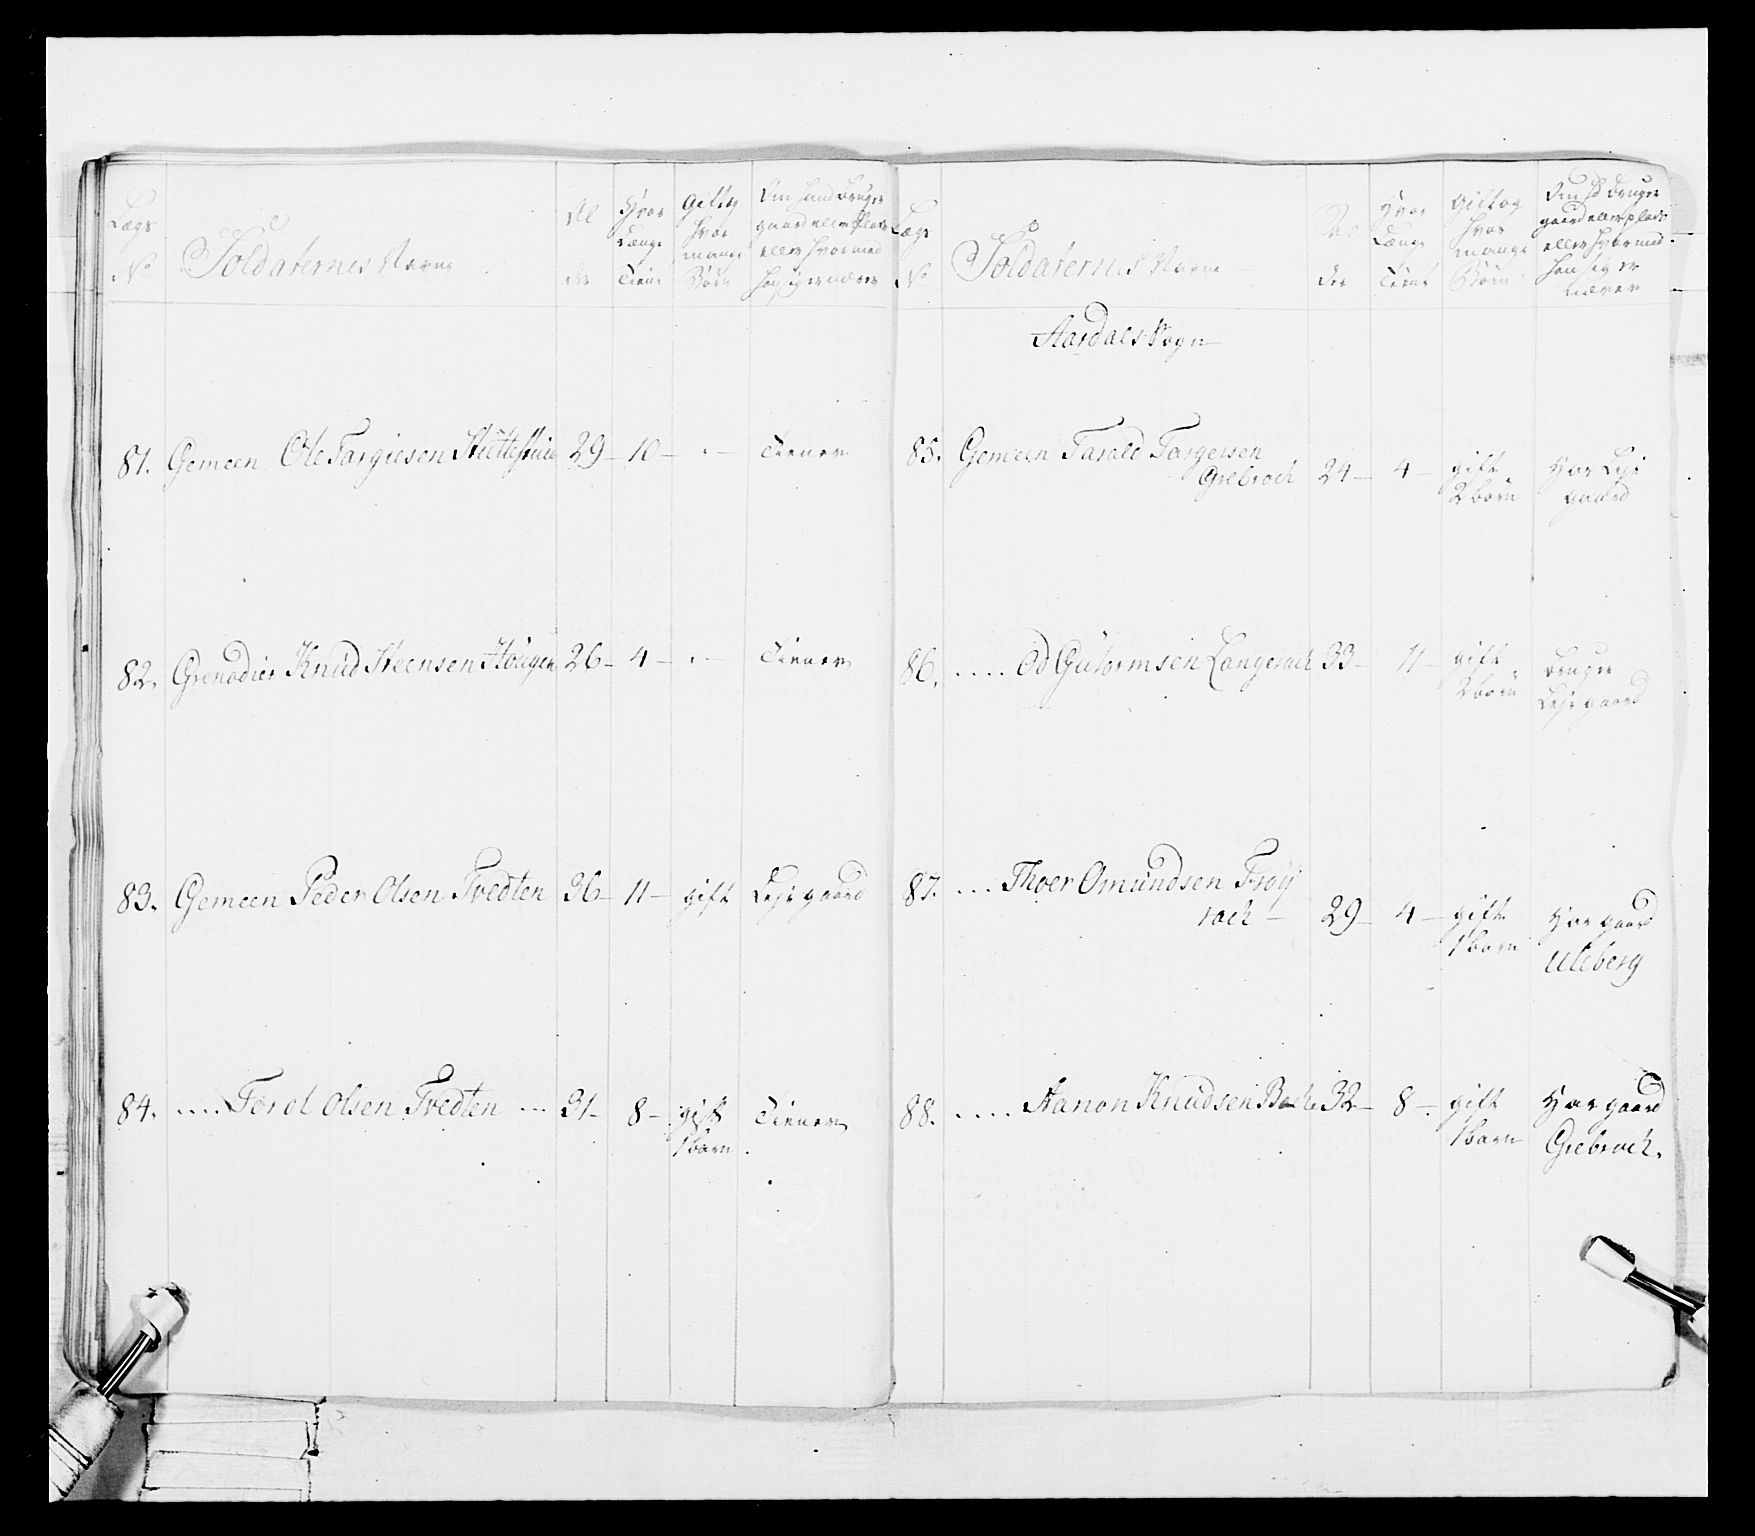 Lægs
No
Soldaternes Navne
Al
der
Hvor
Længe
Tient
Gift og
hvor
mange
Børn
Om hand bruger
gaard eller Plads
eller hvormed
han sig ernærer
81. Gemeen Ole Targiesen 29 - 10 - . - Tiener
82. Grenadier Knud Steensen Hougen 26 - 4 - . - Tiener
83. Gemeen Peder Olsen Tvedten 36 - 11 - gift Leje gaard
84. .... Torel Olsen Tvedten ... 31 - 8 - gift Tiener
1 barn
Lægs
No
Soldaternes Navne
Al
der
Hvor
Længe
Tient
Gift og
hvor
mange
Børn
Om hd bruger
gaard eller plads
eller hvormed
han sig er
nærer
Aardals Sogn
85. Gemeen Tarald Targersen
Grebroch 24 - 4 - gift Har Leje
2 børn gaard
86. .... Od Guttormsen Langerach 33 - 11 - gift bruger
2 børn Leje gaard
87. ... Thoer Omundsen Frøy
rach - 29 - 4 - gift Har gaard
1 barn Uleberg
88. .... Aanon Knudsen 32 - 8 - gift Har gaard
1 barn Grebroch.